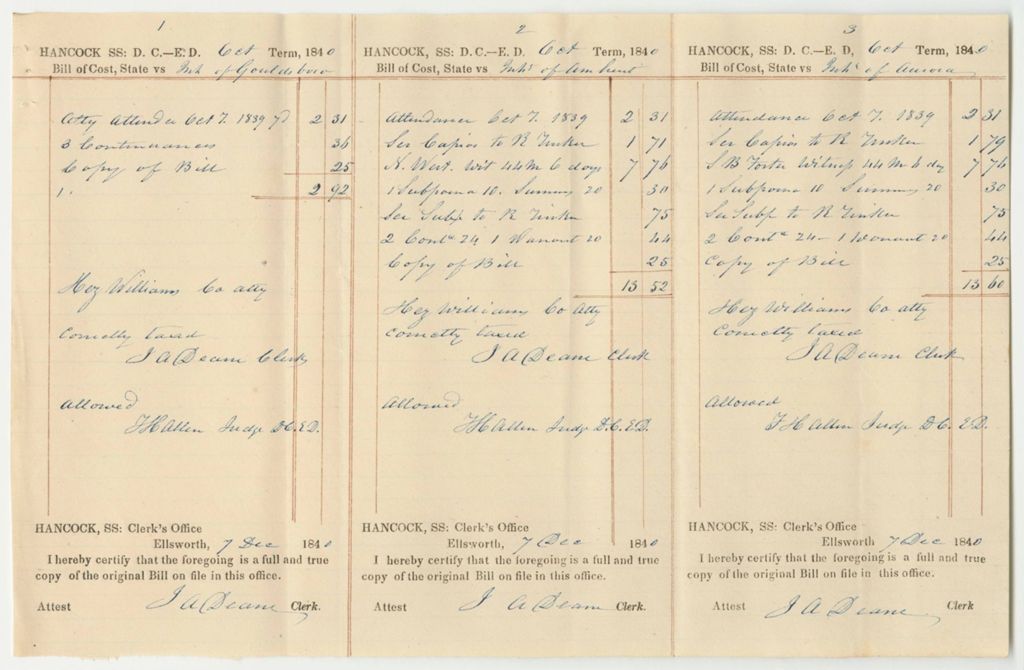 1
HANCOCK SS: D. C.—E. D. Oct Term, 1840
Bill of Cost, State vs Inh of Gouldsboro
Atty Attendce Oct T. 1839 7d 2 31
3 Continuances 36
Copy of Bill 25
1. 2 92
Hez Williams Co atty
Correctly taxed
J A Deane Clerk
Allowed
F H Allen Judge D.C.E.D.
HANCOCK, SS: Clerk's Office
Ellsworth, 7 Dec 1840
I hereby certify that the foregoing is a full and true
copy of the original Bill on file in this office.
Attest J A Deane Clerk.
2
HANCOCK, SS: D. C.—E. D. Oct Term, 1840
Bill of Cost, State vs Inhs of Amherst
Attendance Oct T. 1839 2 31
Ser Capias to R Tinker 1 71
N. West. Wit 44 M 6 days 7 76
1 Subpoena 10. Summs 20 30
Ser Subp to R Tinker 75
2 Conts 24 1 Warrant 20 44
Copy of Bill 25
13 52
Hez Williams Co Atty
Correctly taxed
J A Deane Clerk
Allowed
F H Allen Judge D.C.E.D.
HANCOCK, SS: Clerk's Office
Ellsworth, 7 Dec 1840
I hereby certify that the foregoing is a full and true
copy of the original Bill on file in this office.
Attest J A Deane Clerk.
3
HANCOCK, SS: D. C.—E. D. Oct Term, 1840
Bill of Cost, State vs Inhs of Aurora
Attendance Oct T. 1839 2 31
Ser Capias to R Tinker 1 79
S B Foster Witness 44 M 6 dy 7 76
1 Subpoena 10 Summs 20 30
Ser Subp to R Tinker 75
2 Conts 24 — 1 Warrant 20 44
Copy of Bill 25
13 60
Hez Williams Co atty
Correctly taxed
J A Deane Clerk
Allowed
F H Allen Judge D.C. E.D.
HANCOCK, SS: Clerk's Office
Ellsworth 7 Dec 1840
I hereby certify that the foregoing is a full and true
copy of the original Bill on file in this office.
Attest J A Deane Clerk